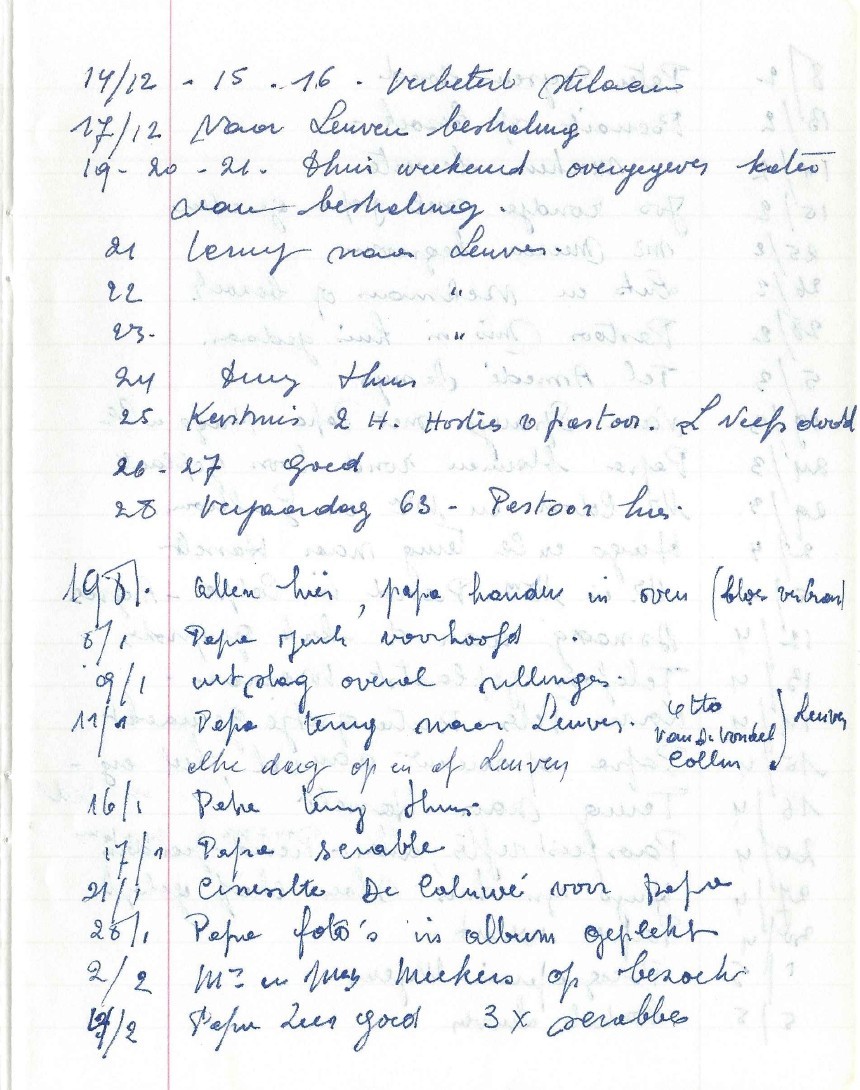 14/12 - 15 - 16 - Verbetert stilaan
17/12 Naar Leuven bestraling
19 - 20 - 21. thuis weekend overgegeven
van bestraling.
21 terug naar Leuven.
22 "
23. "
24 terug thuis
25 Kerstmis 2 H. Hosties v pastoor.
26 - 27 goed
28 Verjaardag 63 - Pastoor hier.
Allen hier, papa handen in oven
8/1 Papa voorhoofd
09/1 uitslag overal rillingen.
11/1 Papa terug naar Leuven. Otto
Van de Vondel ) Leuven
Collin
elke dag op en af Leuven
16/1 Papa terug thuis
17/1 Papa scrable
21/1 Cinesiste De Caluwé voor papa
28/1 Papa foto's in album geplekt
2/2 Mr en Meekers op bezoek
/2 Papa zeer goed 3 x scrabble